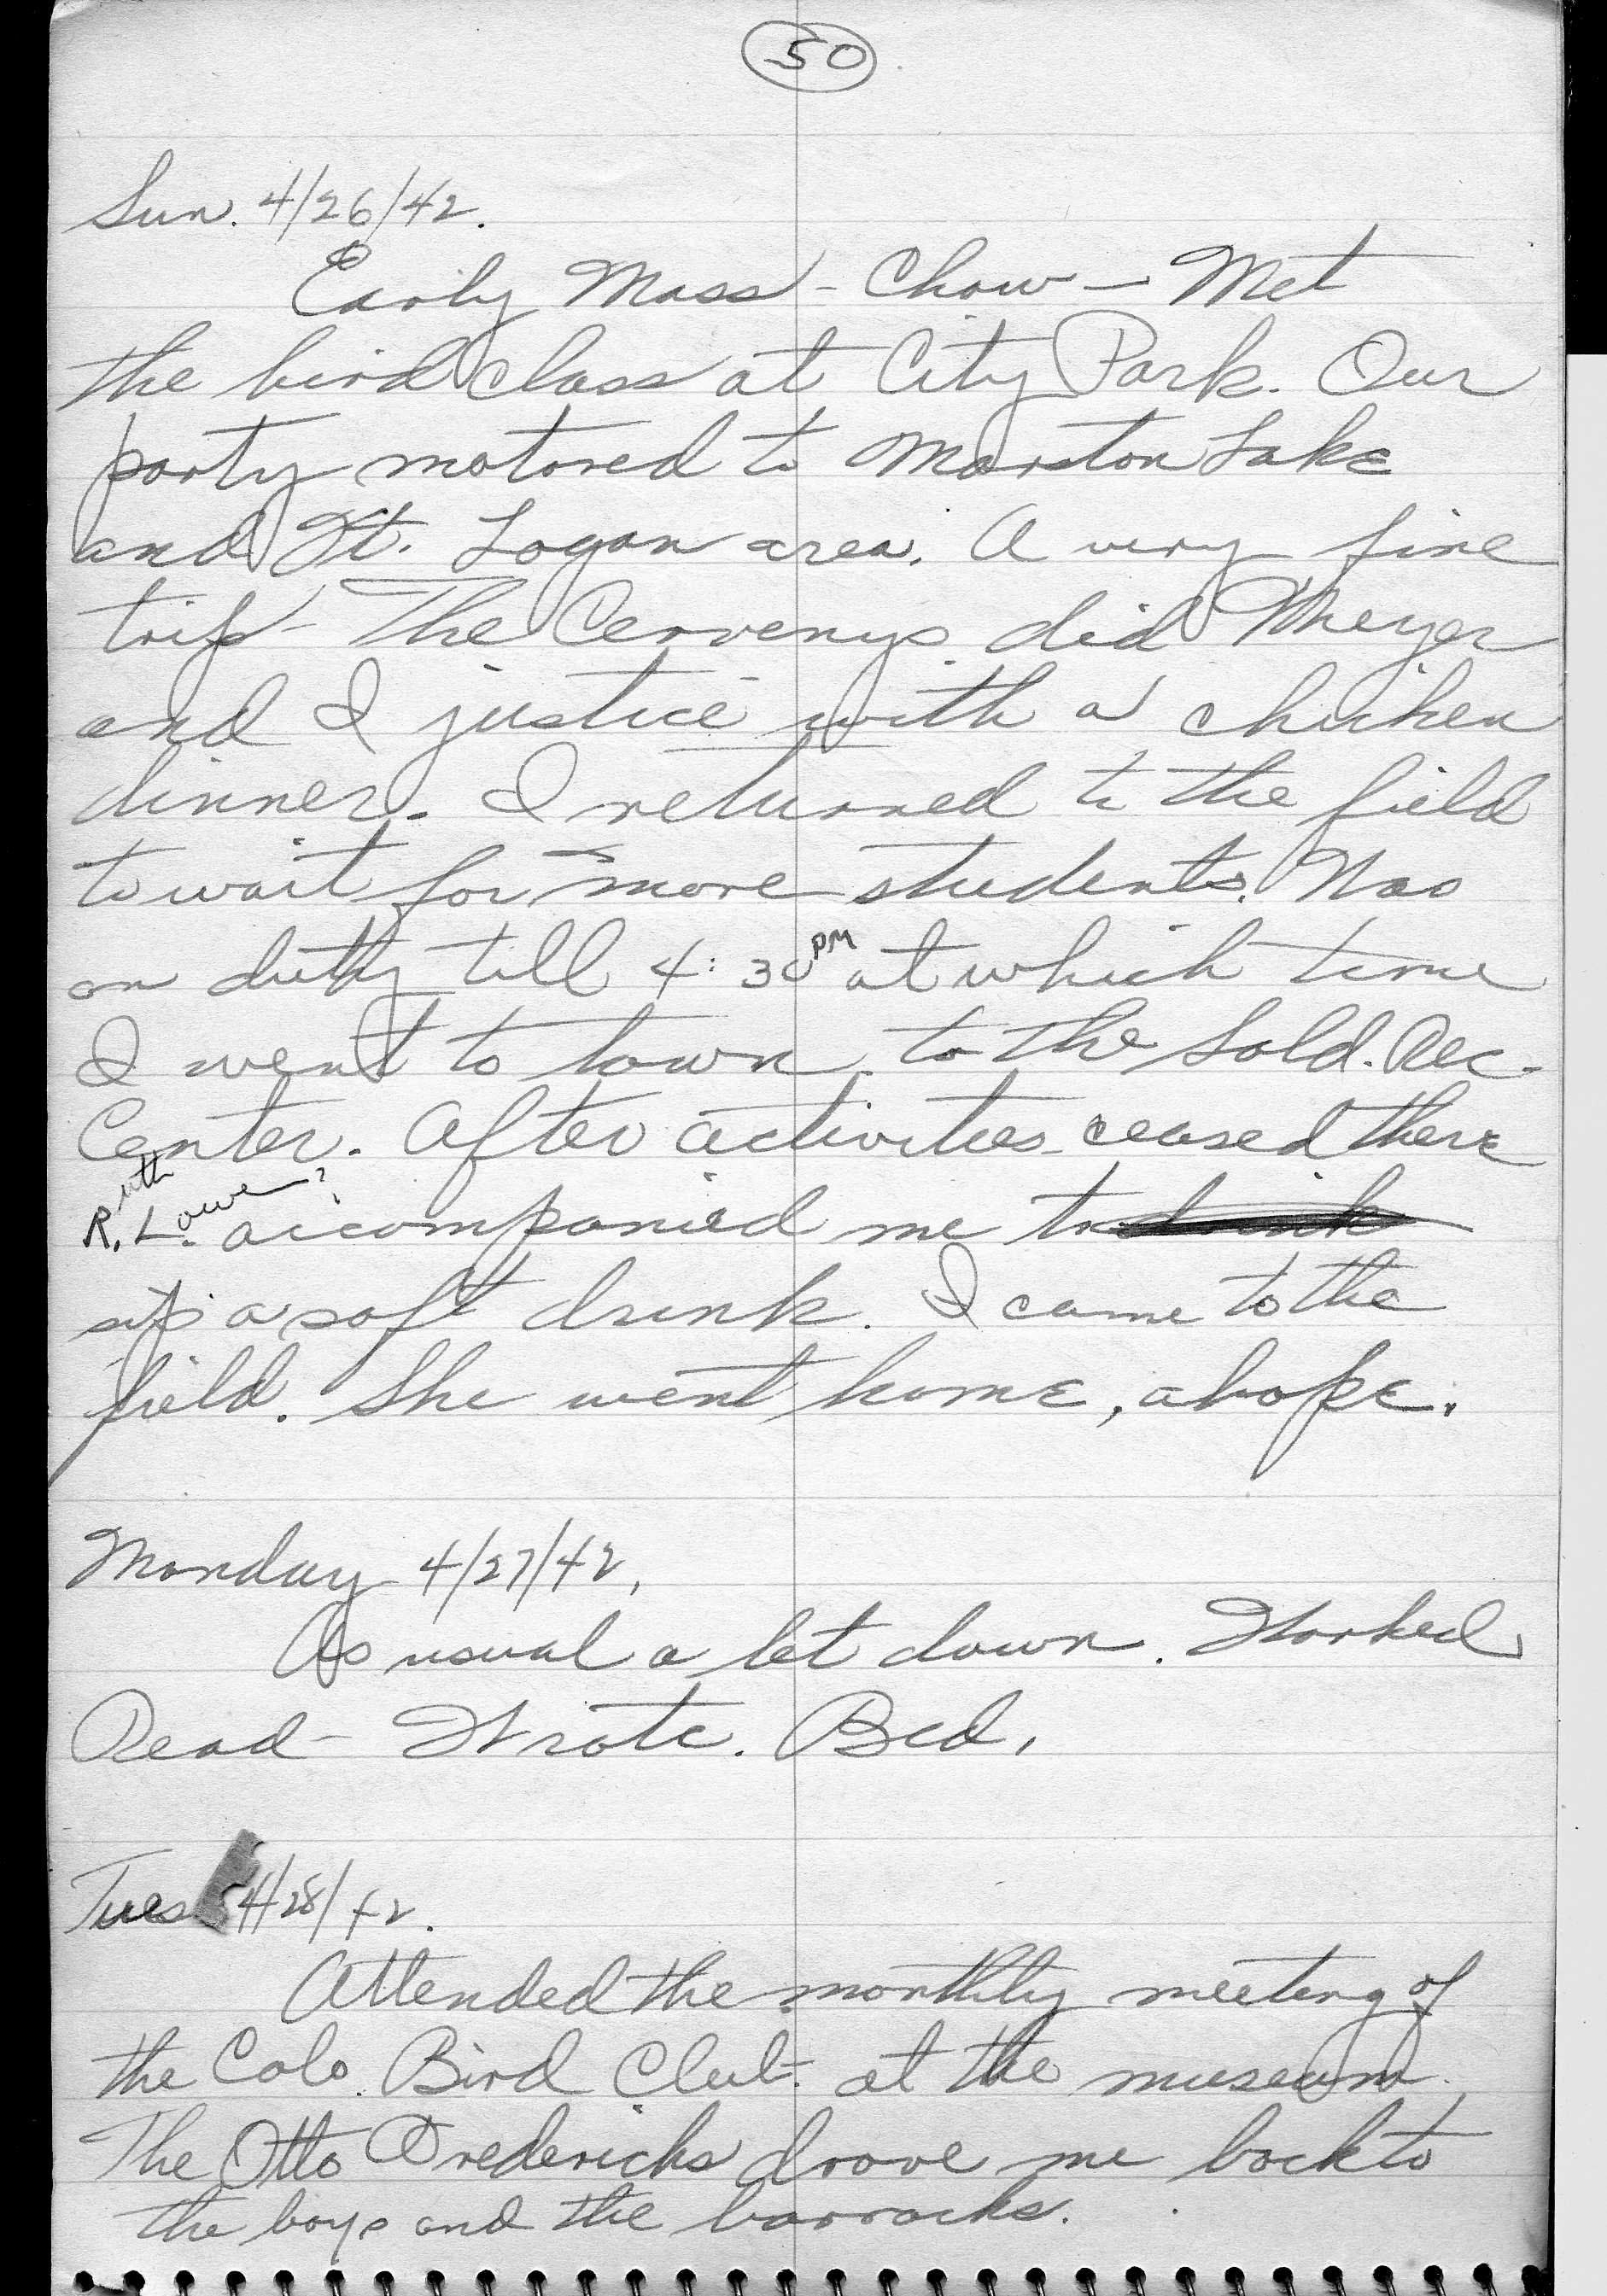 50
Sun. 4/26/42.
Early Mass - Chow - Met
the bird class at City Park. Our
party motored to Marston Lake
and Ft. Logan area. A very fine
trip - The Cervenys did Meyer
and I justice with a chicken
dinner. I returned to the field
to wait for more students. Was
on duty till 4:30 PM at which time
I went to town to the Sold. Rec.
Center. After activities ceased there
R.uth L.owe? accompanied me to drink
sip a soft drink. I came to the
field. She went home, ahope.
Monday 4/27/42.
As usual a let down. Worked
Read - Wrote. Bed.
Tues 4/28/42.
Attended the monthly meeting of
the Colo. Bird Club at the museum.
The Otto Fredericks drove me back to
the boys and the barracks.